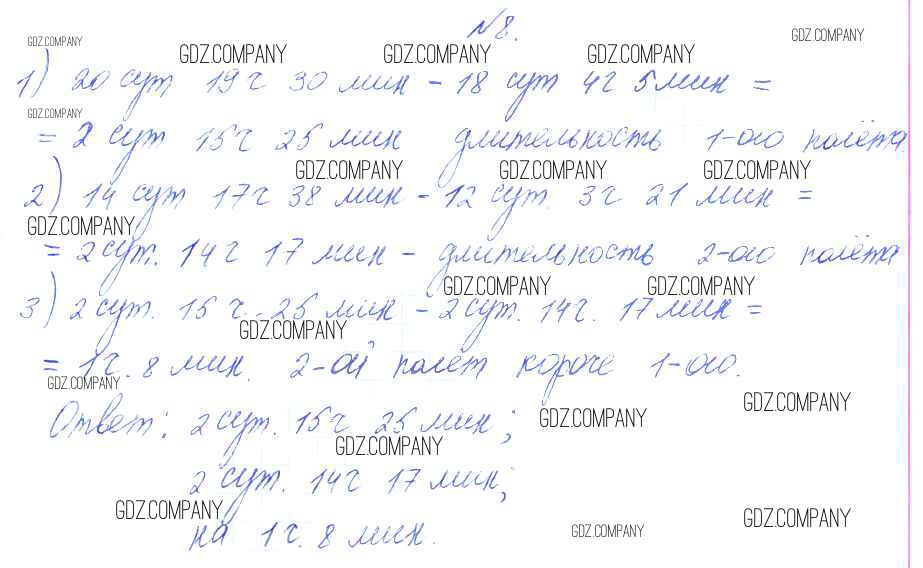 №8.
GDZ.COMPANY GDZ.COMPANY GDZ.COMPANY GDZ.COMPANY GDZ.COMPANY
1) 20 сут 19 ч 30 мин - 18 сут 4ч 5 мин =
GDZ.COMPANY
= 2 сут 15ч 25 мин длительность 1-ого полёта.
GDZ.COMPANY GDZ.COMPANY GDZ.COMPANY
2) 14 сут 17ч 38 мин - 12 сут. 3ч 21 мин =
GDZ.COMPANY
= 2 сут. 14ч 17 мин - длительность 2-ого полёта
GDZ.COMPANY GDZ.COMPANY
3) 2 сут. 15 ч. 25 мин - 2 сут. 14ч. 17 мин =
GDZ.COMPANY
= 1 ч. 8 мин. 2-ой полёт короче 1-ого.
GDZ.COMPANY GDZ.COMPANY
Ответ: 2 сут. 15ч 25 мин;
GDZ.COMPANY
GDZ.COMPANY
2 сут. 14ч 17 мин;
GDZ.COMPANY GDZ.COMPANY
на 1 ч. 8 мин.
GDZ.COMPANY